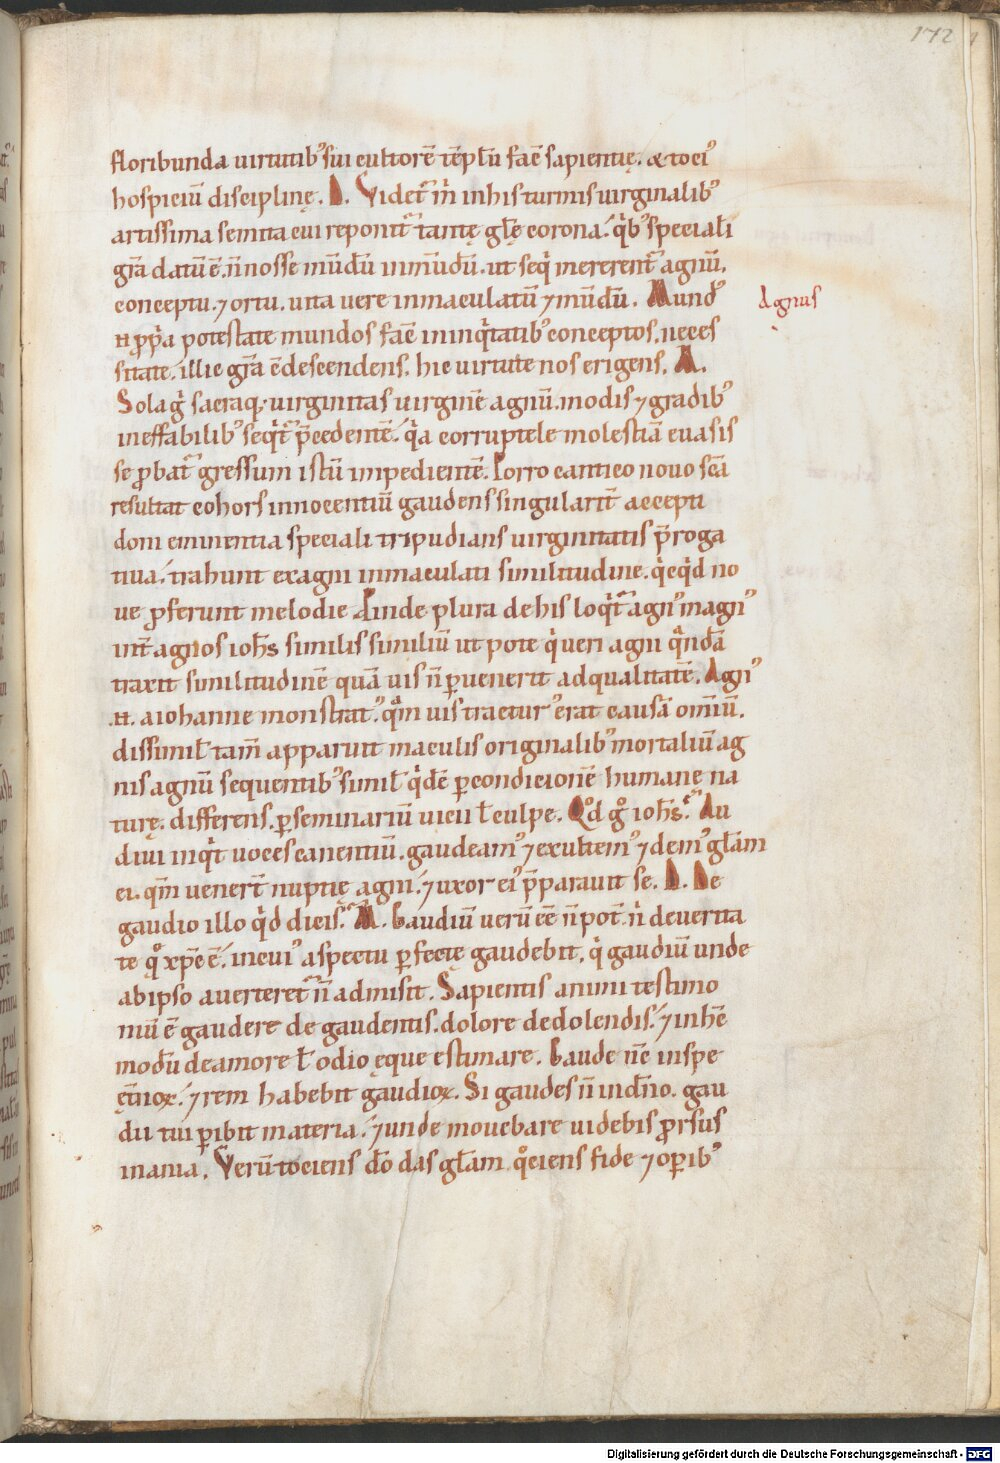 172
floribunda uirtutibꝰ sui cultorē tēplū facē sapientię. & toc̄ eiꝰ
hospiciū disciplinę. D. Videt᷑ m̄ in his turmis uirginalibꝰ
artissima semita cui reponit᷑ tantę gl̄ę corona. qͥbꝰ speciali
gr̄a datū ē. n̄ nosse mūdū inmūdū. ut seqͥ mererent᷑ agnū.
conceptu. ⁊ ortu. uita uere inmaculatū ⁊ mūdū. Mundꝰ
Agnus
n. ꝓpͥa potestate mundos facē in inqͥtatibꝰ conceptos. neces
sitate. illic gr̄a c̄descendens. hic uirtute nos erigens. M.
Sola gͥ sacraq; uirginitas uirginē agnū. modis ⁊ gradibꝰ
ineffabilibꝰ seqͥt᷑ p̄cedentē. qͥa corruptele molestiā euasis
se probat᷑ gressum istū impedientē. Porro cantico nouo sc̄a
resultat cohors innocentiū gaudens singularit̄ accepti
doni eminentia speciali tripudians uirginitatis p̄roga
tiua. trahunt ex agni inmaculati similitudine. qͥcqͥd no
ue ꝓferunt melodie. Dinde plura de his loqͥt᷑ agnꝰ magnꝰ
int̄ agnos ioh̄s similis similiū ut pote qͥ ueri agni qͣndā
traxit similitudinē quā uis n̄ ꝑuenerit ad qualitatē. Agnꝰ
.n. a iohanne monstratꝰ. qͣm uis tracturꝰ erat causā omīū.
dissimil̄ tam̄ apparuit maculis originalibꝰ mortaliū ag
nis agnū sequentibꝰ simil̄ qͥdē ꝑ condicionē humanę na
turę. differens. ꝑ seminariū uicii ł culpe. Qͦd gͦ ioh̄s. Au
diui inqͥt uoces canentiū. gaudeamꝰ ⁊ exultemꝰ ⁊ demꝰ gl̄am
ei. qm̄ uener̄t nuptię agni. ⁊ uxor eiꝰ p̄parauit se. D. De
gaudio illo qͥd dicis. M. Gaudiū uerū eē n̄ pot̄. nͥ de uerita
te qͦ xp̄c ē. in cuiꝰ aspectu ꝑfecte gaudebit. qͥ gaudiū unde
ab ipso auerteret᷑ n̄ admisit. Sapientis animi testimo
niū ē gaudere de gaudentis. dolore de dolendis. ⁊ in hc̄
modū de amore ł odio ęque estimare. Gaude nc̄ in spe
ęt̄noꝝ. ⁊ rem habebit gaudioꝝ. Si gaudes n̄ in dn̄o. gau
dii tui ꝑibit materia. ⁊ unde mouebare uidebis ꝓrsus
inania. Verū tociens dō das gl̄am. qͦciens fide ⁊ oꝑibꝰ
Digitalisierung gefördert durch die Deutsche Forschungsgemeinschaft - DFG